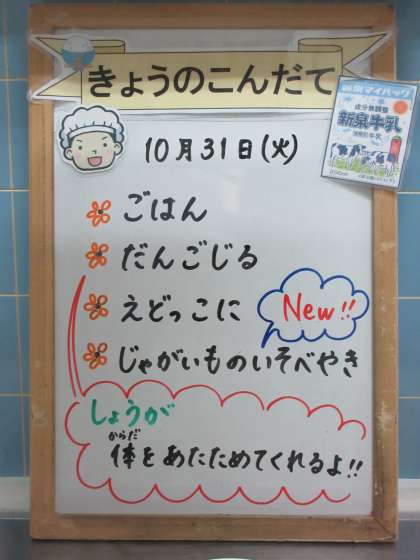 きょうのこんだて
10月31日(火)
ごはん
だんごじる
えどっこに
New!!
じゃがいものいそべやき
しょうが
からだ
体をあたためてくれるよ!!
成分無調整
新泉牛乳
200ml